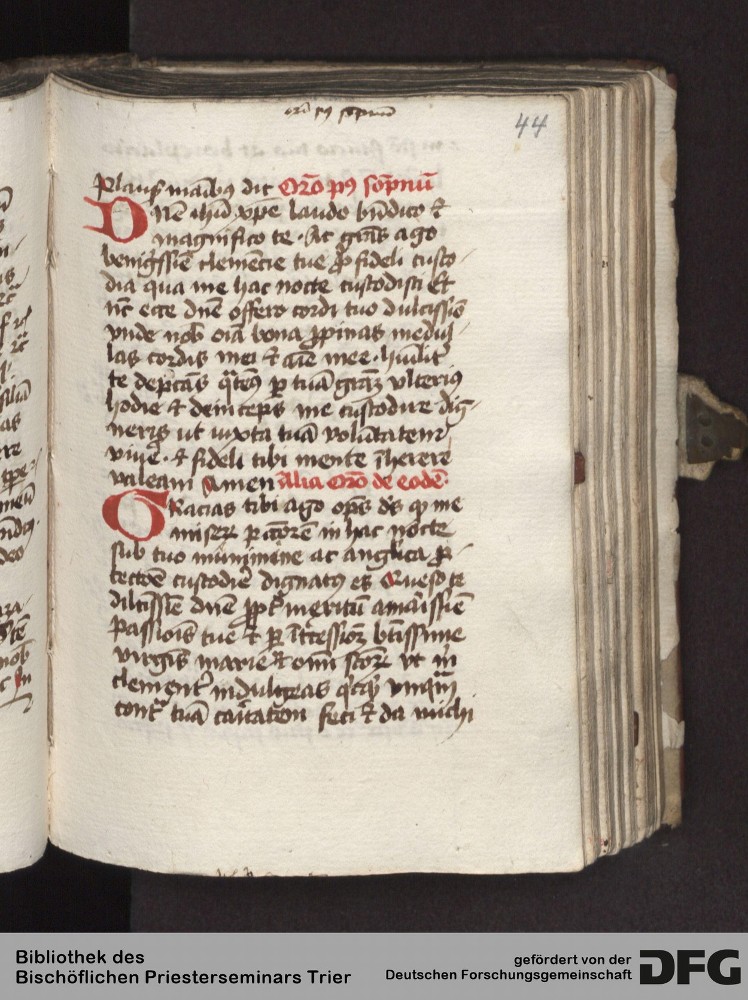 orō pꝯ sōpnū
44
Plausꝭ maībꝯ dic Orō pꝯ sōpnū
Dn̄e ihū xp̄e laudo bn̄dico ⁊
magnifico te · Ac gr̄as ago
benigssīe clemēcie tue ꝓ fideli custo-
dia qua me hac nocte custodisti Et
nc̄ ecce dn̄e offero cordi tuo dulcissīo
vnde nob̄ oīa bona ꝓpinas medul-
las cordis mei ⁊ aīe mee · hūilit̄
te dep̄cās q̄teꝯ ꝑ tuā grāꝫ vlteriꝯ
hodie ⁊ deinceps me custodire dig-
neris ut iuxta tuā volūtatem
viūe · ⁊ fideli tibi mente īherere
valeam Amen Alia Orō de eodē
Gracias tibi ago op̄s ds̄ qͥ me
miseꝝ pc̄c̄orē in hac nocte
sub tuo munimīne ac angl̄ica ꝓ-
tectōe custodir̄e dignatꝯ es Queso te
dilc̄issīe dn̄e ꝓpt̄ meritū amarissīe
Passiōis tue ⁊ ꝑ īt̄cessioꝫ bt̄issime
virgīs marie ⁊ om̄i sc̄oꝝ vt m̄
clement̄ indulgeas qͥcqͥd vnqͣm
cont̄ tuā caritatem feci ⁊ da michi
Bibliothek des
Bischöflichen Priesterseminars Trier
gefördert von der
Deutschen Forschungsgemeinschaft
DFG